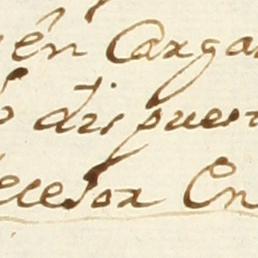 en Cargar
dispuest
ecesor En